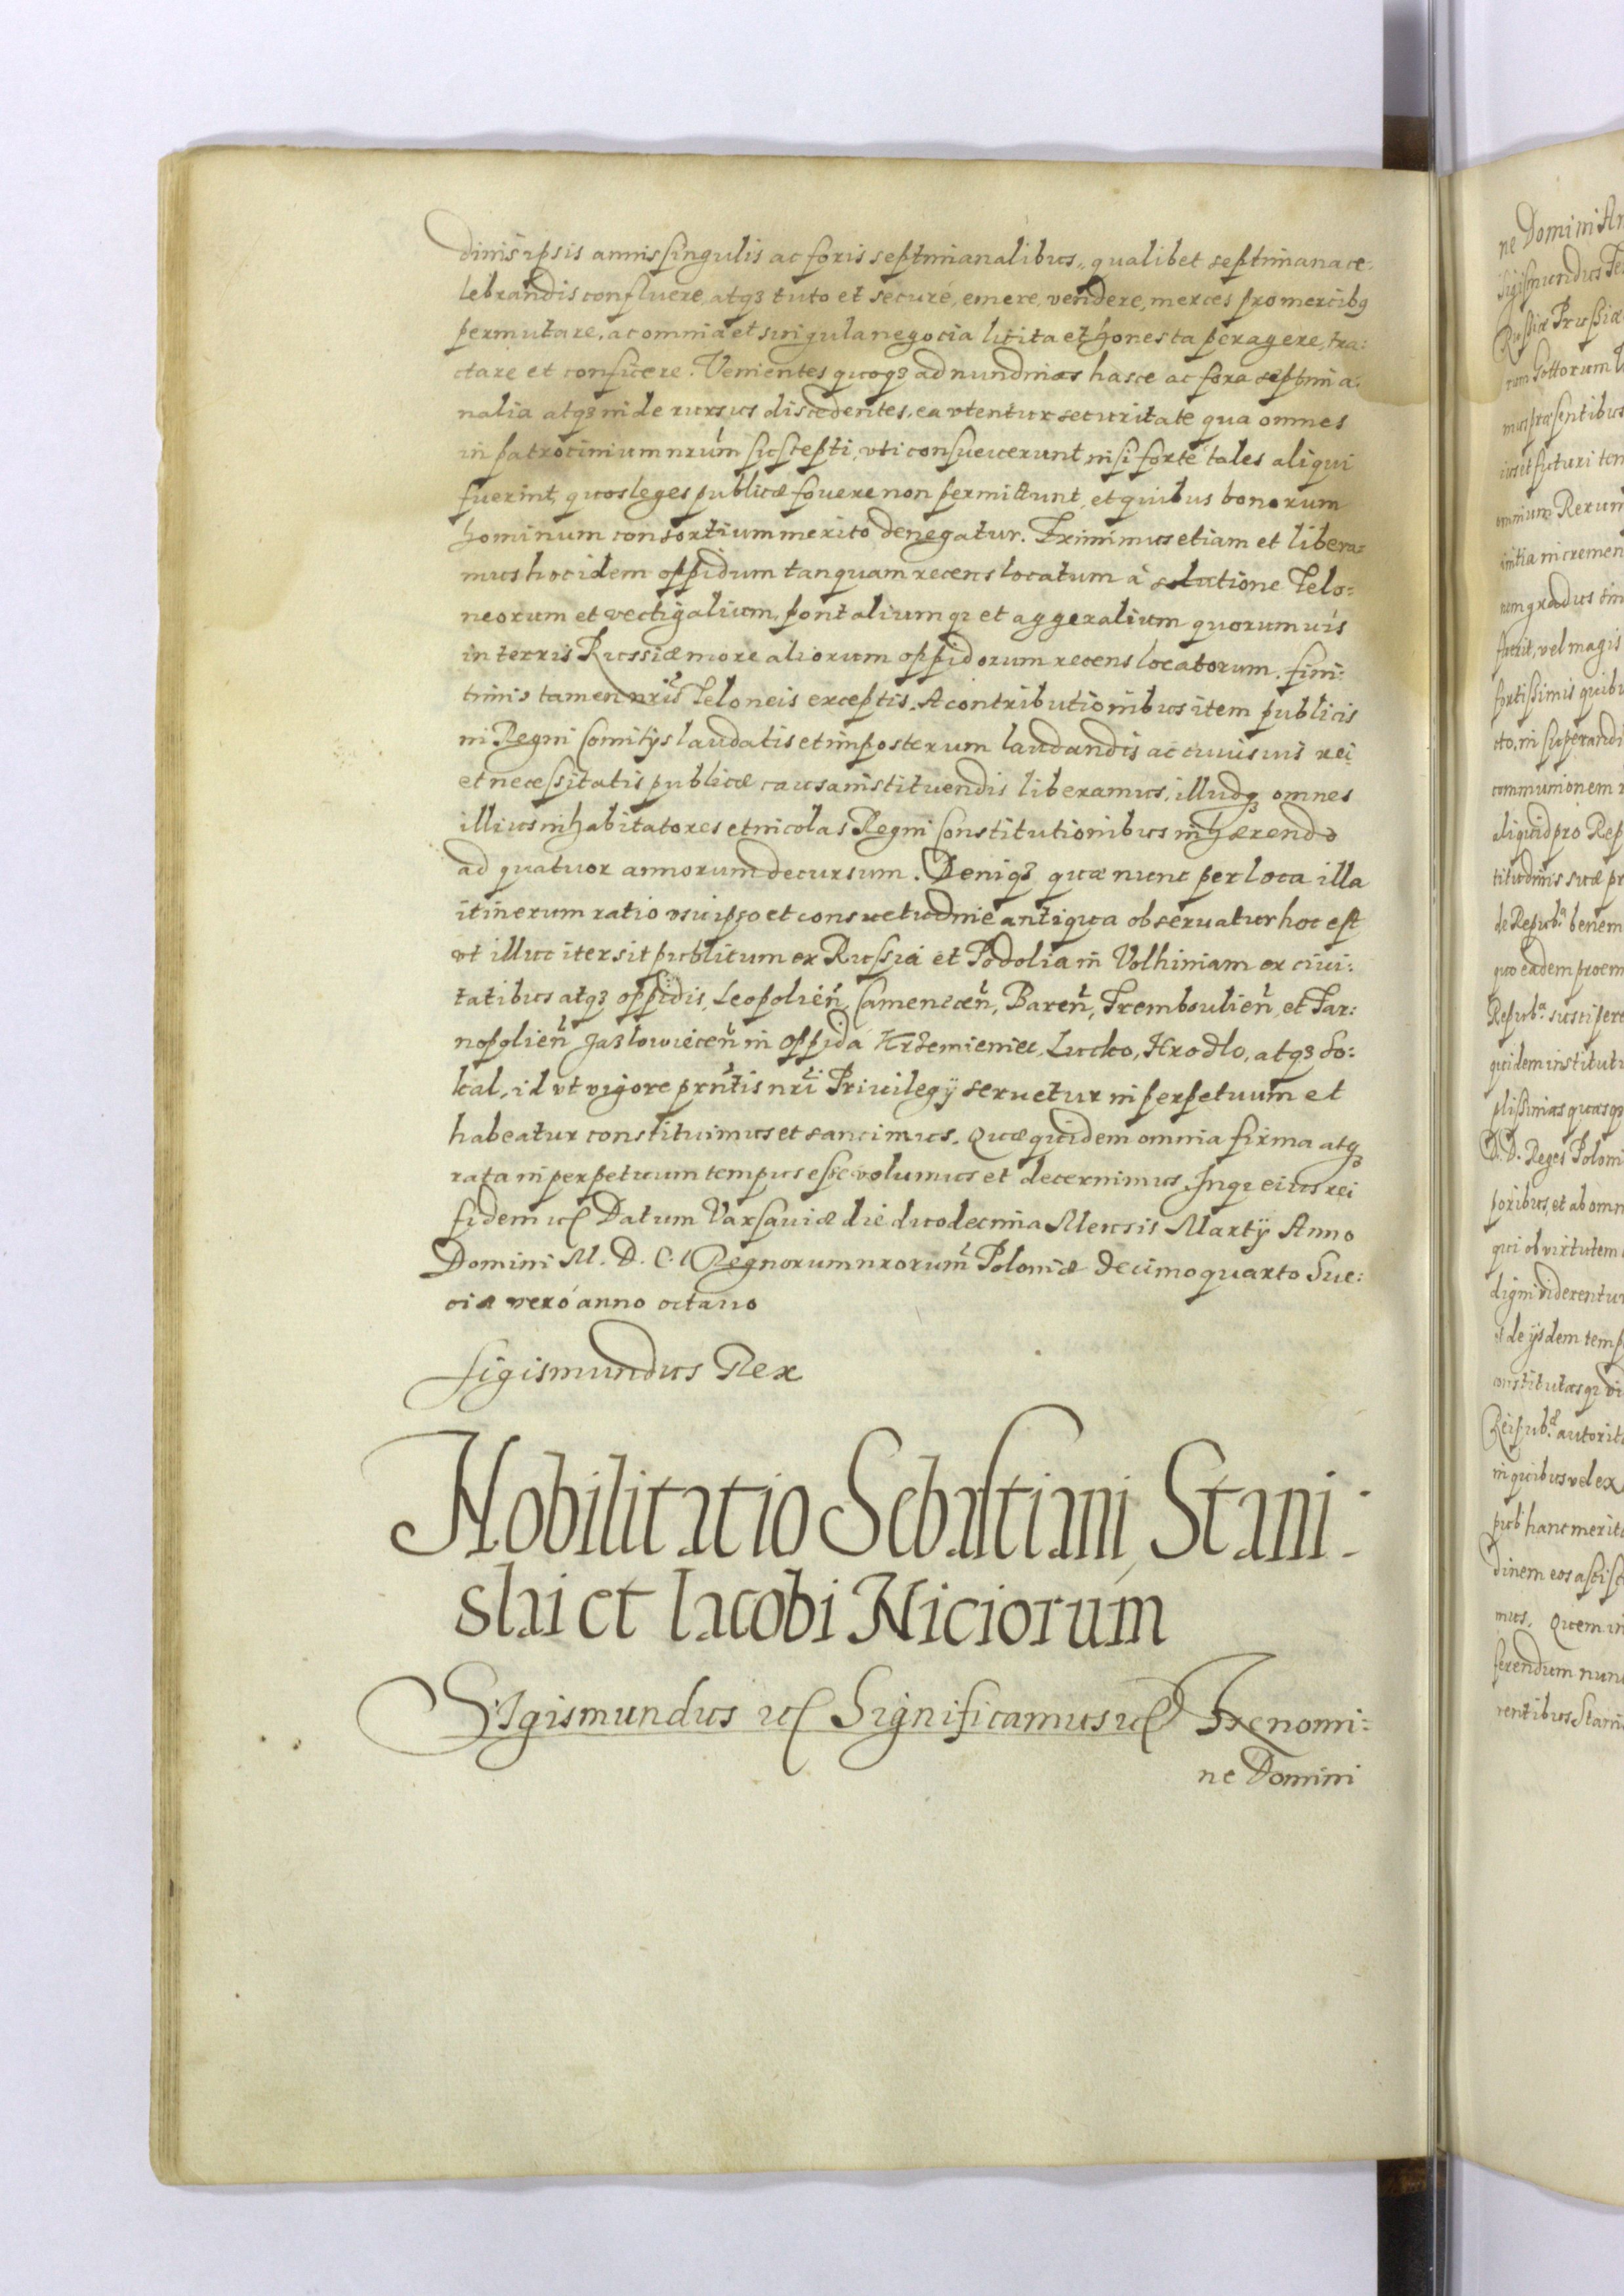 dinis ipsis annis singulis ac foris septimanalibus, qualibet septimana ce-
lebrandis confluere, atq3 tuto et securé, emere, vendere, merces pro mercibq
permutare, ac omnia et singula negocia licita et honesta peragere, tra:
ctare et conficere. Venientes quoq3 ad nundinas hasce ac fora septima:
nalia atq3 inde rursus discedentes, ea vtentur securitate qua omnes
in patrocinium nrúm suscepti, vti consueuerunt, nisi forté tales aliqui
fuerint, quos leges publicæ fouere non permittunt, et quibus bonorum
hominum consortium merito denegatur. Eximimus etiam et libera=
mus hoc idem oppidum tanquam recens locatum á solutione Telo:
neorum et vectigalium, pontaliumq3 et aggeralium quorumuis
in terris Russiæ more aliorum oppidorum recens locatorum, fini:
timis tamen nris Teloneis exceptis. A contributionibus item publicis
in Regni Comitÿs laudatis et imposterum laudandis ac cuiusuis rei
et necessitatis publicæ causa instituendis liberamus, illudq3 omnes
illius inhabitatores et incolas Regni Constitutionibus inhærendo
ad quatuor annorum decursum. Deniq3 quæ nunc per loca illa
itinerum ratio vsu ipso et consuetudine antiqua obseruatur hoc est
vt illuc iter sit publicum ex Russia et Podolia in Volhiniam ex ciui:
tatibus atq3 oppidis, Leopolień, Cameneceń, Bareń, Trembouliień, et Tar:
nopolień Jazlowieceń in oppida Krzemieniec, Lucko, Hrodlo, atq3 So:
kal, id vt vigore prńtis nrí Priuilegÿ seruetur in perpetuum et
habeatur constituimus et sancimus. Quæ quidem omnia firma atq3
rata in perpetuum tempus esse volumus et decernimus. Inq3 eius rei
fidem etc Datum Varsauiæ die duodecima Mensis Martÿ Anno
Domini M. D. C. I Regnorum nrorum Poloniæ decimoquarto Sue:
ciæ veró anno octauo
Sigismundus Rex
Nobilitatio Sebastiani, Stani:
slai et Iacobi Niciorum
SIgismundus etc Significamus etc Exenomi:
ne Domini
ne Domini
Sigismundus
Russiæ Prussiæ
Gottorum
præsentibus
omnium Rerum
incremen
vel magis
fortissimis
in superandi
communionem
aliquid pro Rep
de Repub. benem
quo eadem proem
Repub.
quidem
D. D. Reges Poloni
poribus, et ab omn
qui ob virtutem
digni viderentur
de ÿsdem temp
autorit
in quibus vel ex
hanc merit
dinem eos
mus. Quem in
ferendum nunc